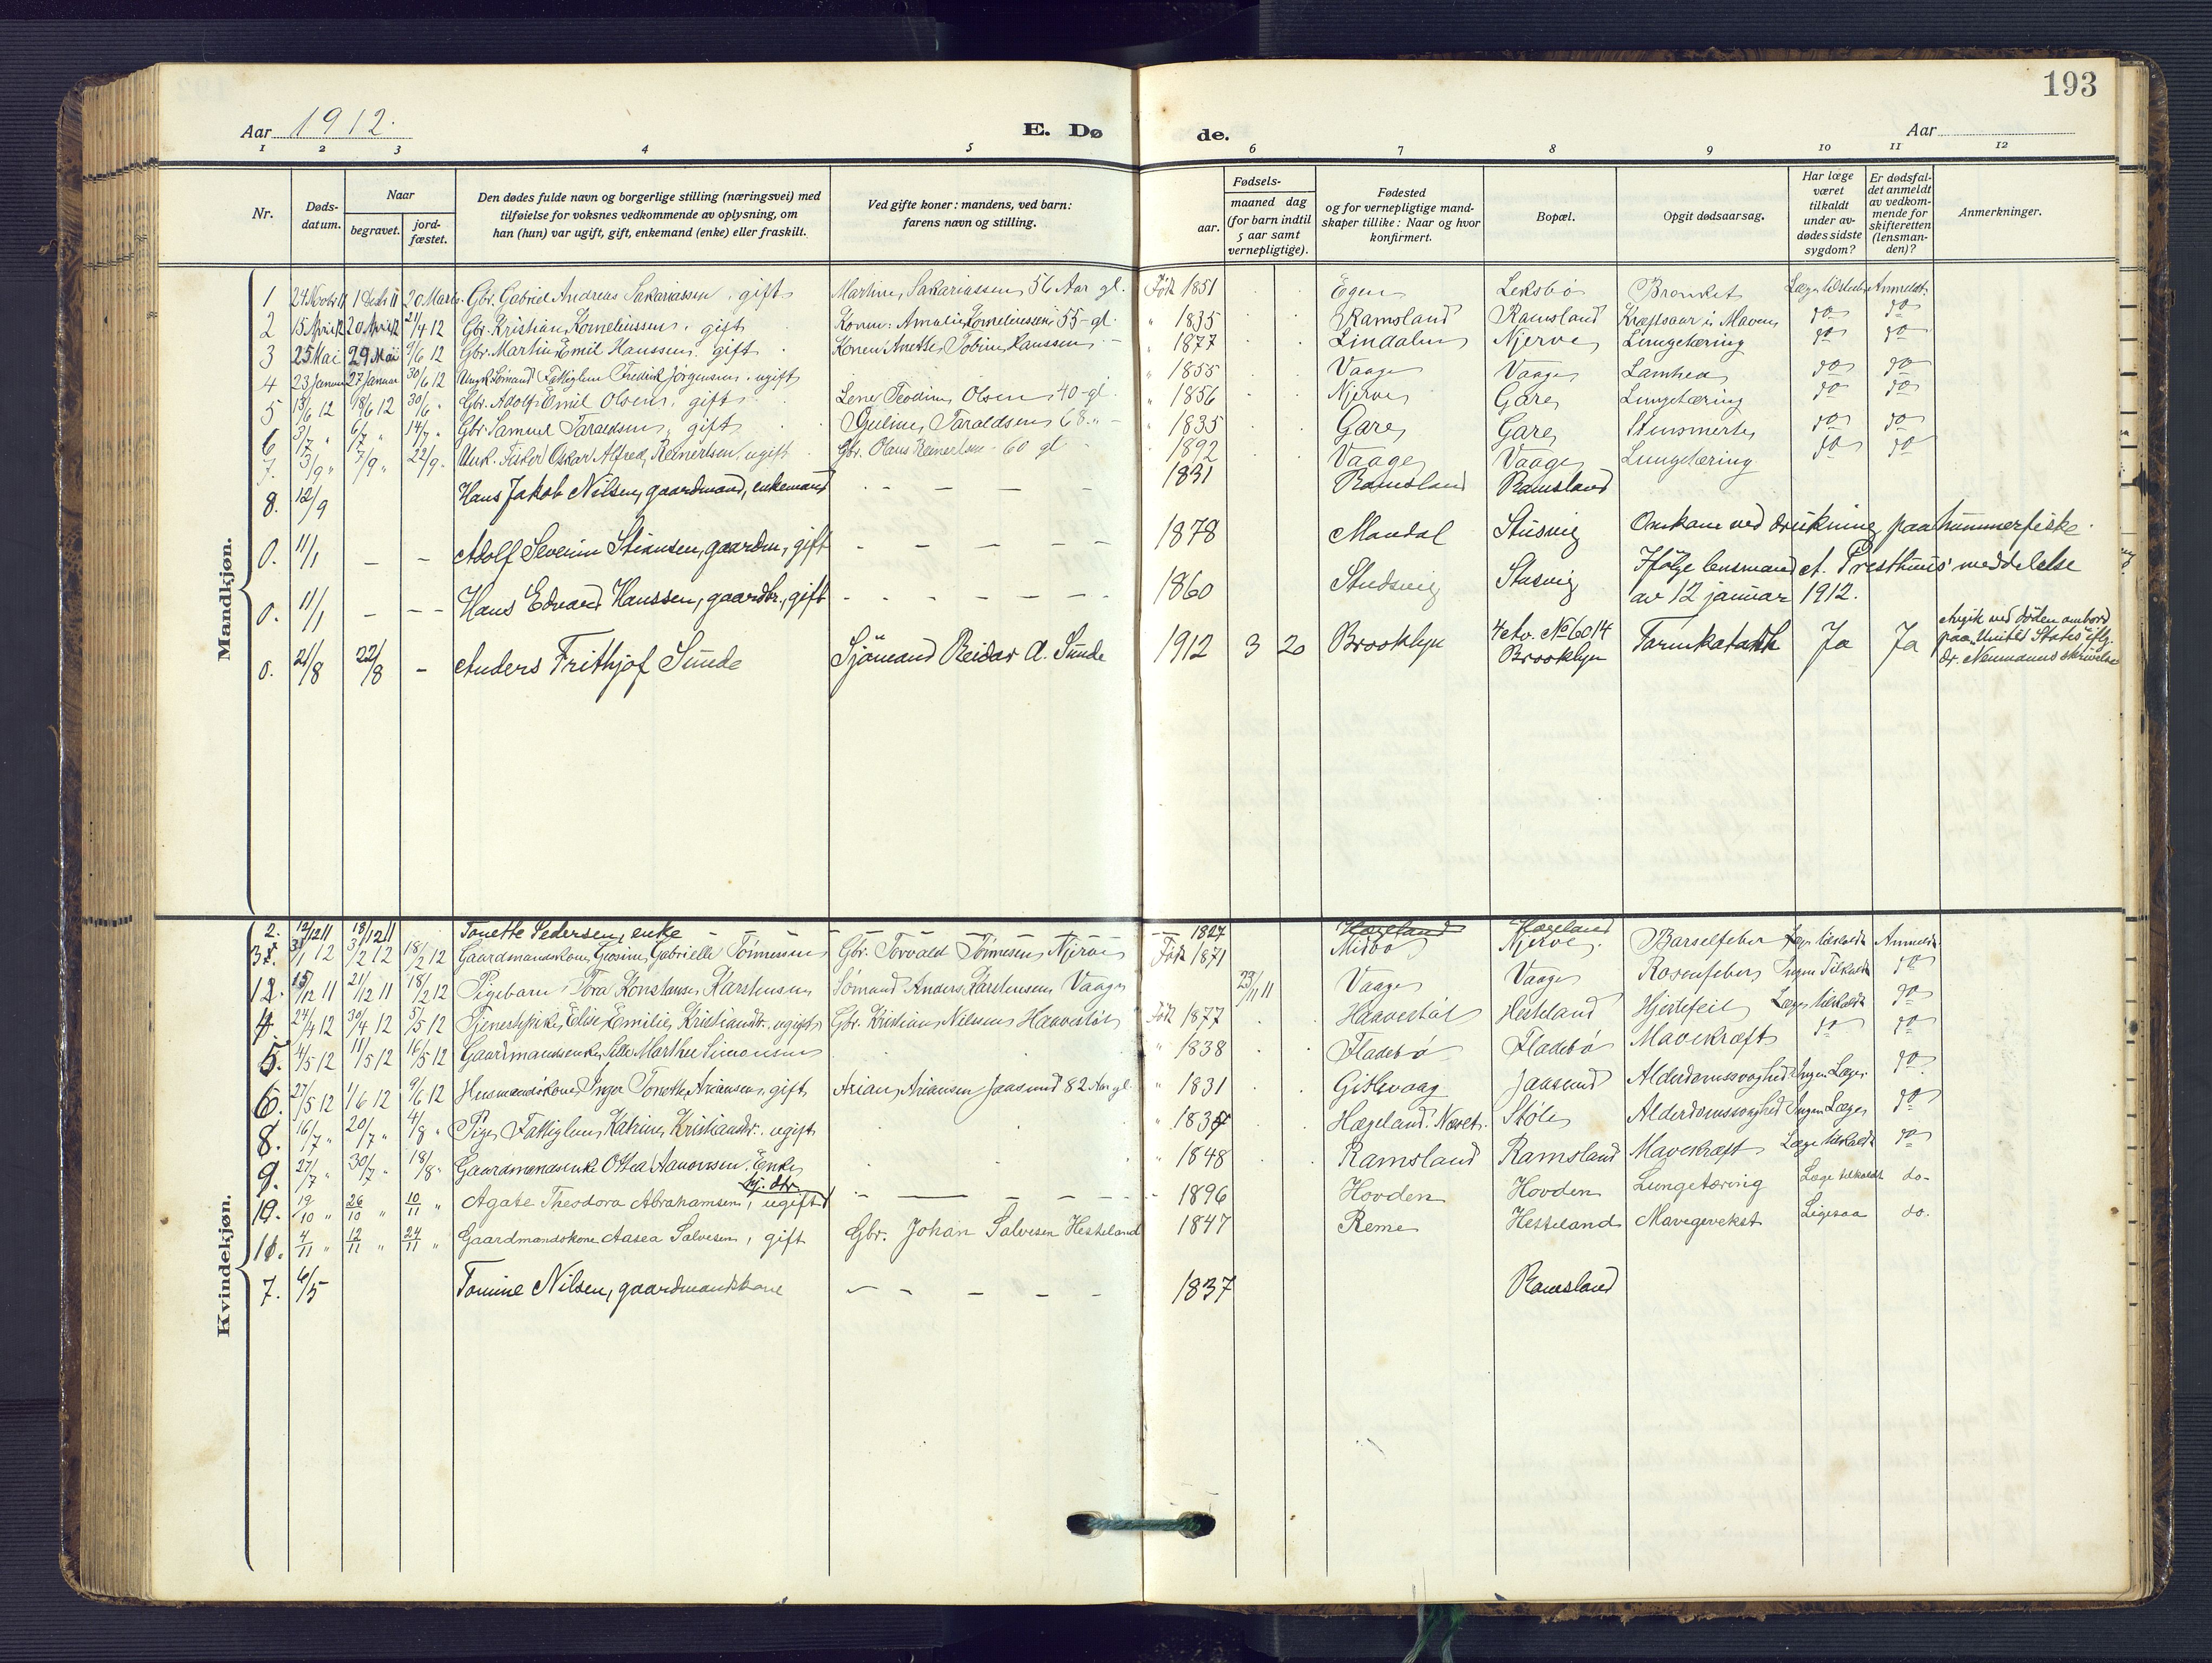 193
Aar 1912. E. Dø de. Aar
1 2 3 4 5 6 7 8 9 10 11 12
Nr. Døds-datum. Naar begravet. jord-fæstet. Den dødes fulde navn og borgerlige stilling (næringsvei) med tilføielse for voksnes vedkommende av oplysning, om han (hun) var ugift, gift, enkemand (enke) eller fraskilt. Ved gifte koner: mandens, ved barn: farens navn og stilling. Fødsels- aar. maaned dag (for barn indtil 5 aar samt vernepligtige). Fødested og for vernepligtige mandskaper tillike: Naar og hvor konfirmert. Bopæl. Opgit dødsaarsag. Har læge været tilkaldt under avdødes sidste sygdom? Er dødsfaldet anmeldt av vedkommende for skifteretten (lensmanden)? Anmerkninger.
Mandkjøn.
1 24 Novbr 11 1 Decbr 11 20 Marts Gbr. Gabriel Andreas Sakariassen, gift Martine Sakariassen, 56 Aar gl. Född 1851 Egen Leksbø Bronkit Læge tilkaldt Anmeldt
2 15 April 20 April 21/4 12 Gbr. Kristian Korneliussen, gift Konen: Amalie Korneliussen 55 - gl. " 1835 Ramsland Ramsland Kræftsaar i Maven do do
3 25 Mai 29 Mai 9/6 12 Gbr. Martin Emil Hanssen, gift Konen Anette Tobine Hanssen - " 1877 Lindalen Njerve Lungetæring do do
4 23 Januar 27 Januar 30/6 12 Ungk. Sømand Fattiglem Fredrik Jörgensen, ugift " 1855 Vaage Vaage Lamhed do do
5 13/6 12 18/6 12 30/6 " Gbr. Adolf Emil Olsen, gift Lene Teodine Olsen 40 - gl. " 1856 Njerve Gare Lungetæring do do
6 3/7 " 6/7 " 14/7 " Gbr. Samuel Taraldsen, gift Guline Taraldsen 68 " - " 1835 Gare Gare Stensmerte do do
7. 3/9 " 7/9 " 22/9 " Unk. Fisker Oskar Alfred Reinertsen, ugift Gbr. Olaus Reinertsen - 60 gl " 1892 Vaage Vaage Lungetæring do do
8. 12/9 Hans Jakob Nilsen, gaardmand, enkemand - - - - - 1831 Ramsland Ramsland
0. 11/1 - - Adolf Severin Stiansen, gaardm., gift - - - - - 1878 Mandal Stusvig Omkom ved drukning paa hummerfiske.
0. 11/1 - - - Hans Edvard Hanssen, gaardbr., gift - - - - - - - 1860 Studsvig Stusvig Ifølge lensmand A. Presthuus' meddelelse
av 12 januar 1912.
0. 21/8 22/8 - Anders Frithjof Sunde Sjömand Reidar A. Sunde 1912 3 20 Brooklyn 4 Av. No 6014 Brooklyn Tarmkatarrh Ja Ja Avgik ved döden ombord
paa "United States" iflg.
dr. Neumanns skrivelse
Kvindekjøn.
2. 12/12 11 18/12 11 Tonette Pedersen, enke - - - - - - - - 1827 Hægeland Hægeland
3. 31/1 12 3/2 12 18/2 12 Gaardmandskone Gabrielle Tönnessen Gbr. Torvald Tönnessen Njerve Född 1871 Midbø Njerve. Barselfeber Læge tilkaldt Anmeldt
12. 15/12 11 21/12 11 18/2 12 Pigebarn Tora Konstanse Karstensen Sömand Anders Karstensen Vaage 23/11 11 Vaage Vaage Rosenfeber Ingen Tilkaldt do
4. 24/4 12 30/4 12 5/5 12 Tjenestepike, Elise Emilie Kristiansdtr. ugift Gbr. Kristian Nilssen Haavestøl Född 1877 Haavestøl Hesteland Hjertefeil Læge tilkaldt do
5. 4/5 12 11/5 12 16/5 12 Gaardmandsenke Sille Marthe Simonsen " 1838 Fladebø Fladebø Mavekræft do do
6. 27/5 12 1/6 12 9/6 12 Husmandskone Inger Tonette Ariansen, gift Arian Ariansen Jaasund 82 Aar gl. " 1831 Gitlevaag Jaasund Alderdomssvaghed Ingen Læge do
8. 16/7 " 20/7 " 4/8 " Pige Fattiglem Katrine Kristiansdtr. ugift " 183 Hægeland. Støle Alderdomssvaghed Ingen Læge do
9. 27/7 " 30/7 " 18/8 " Gaardmandsenke Ottea Aanonsen. Enke " 1848 Ramsland Ramsland Mavekræft Læge tilkaldt do
10. 19/10 " 26/10 " 10/11 " Agate Theodora Abrahamsen, ugift - - - - - 1896 Hovden Hovden Lungetæring Læge tilkaldt do-
11. 4/11 " 12/11 " 24/11 " Gaardmandskone Aasea Salvesen, gift Gbr. Johan Salvesen Hesteland 1847 Reme Hesteland Mavegevekst Ligesaa do.
7. 6/5 Tomine Nilsen, gaardmandskone - - - - - 1837 Ramsland